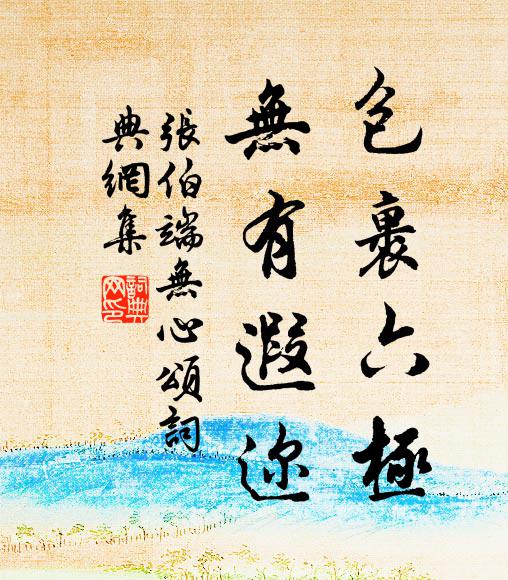 包裹六極
無有遐迩
張伯端無心頌詞
典網集
詞典
网印